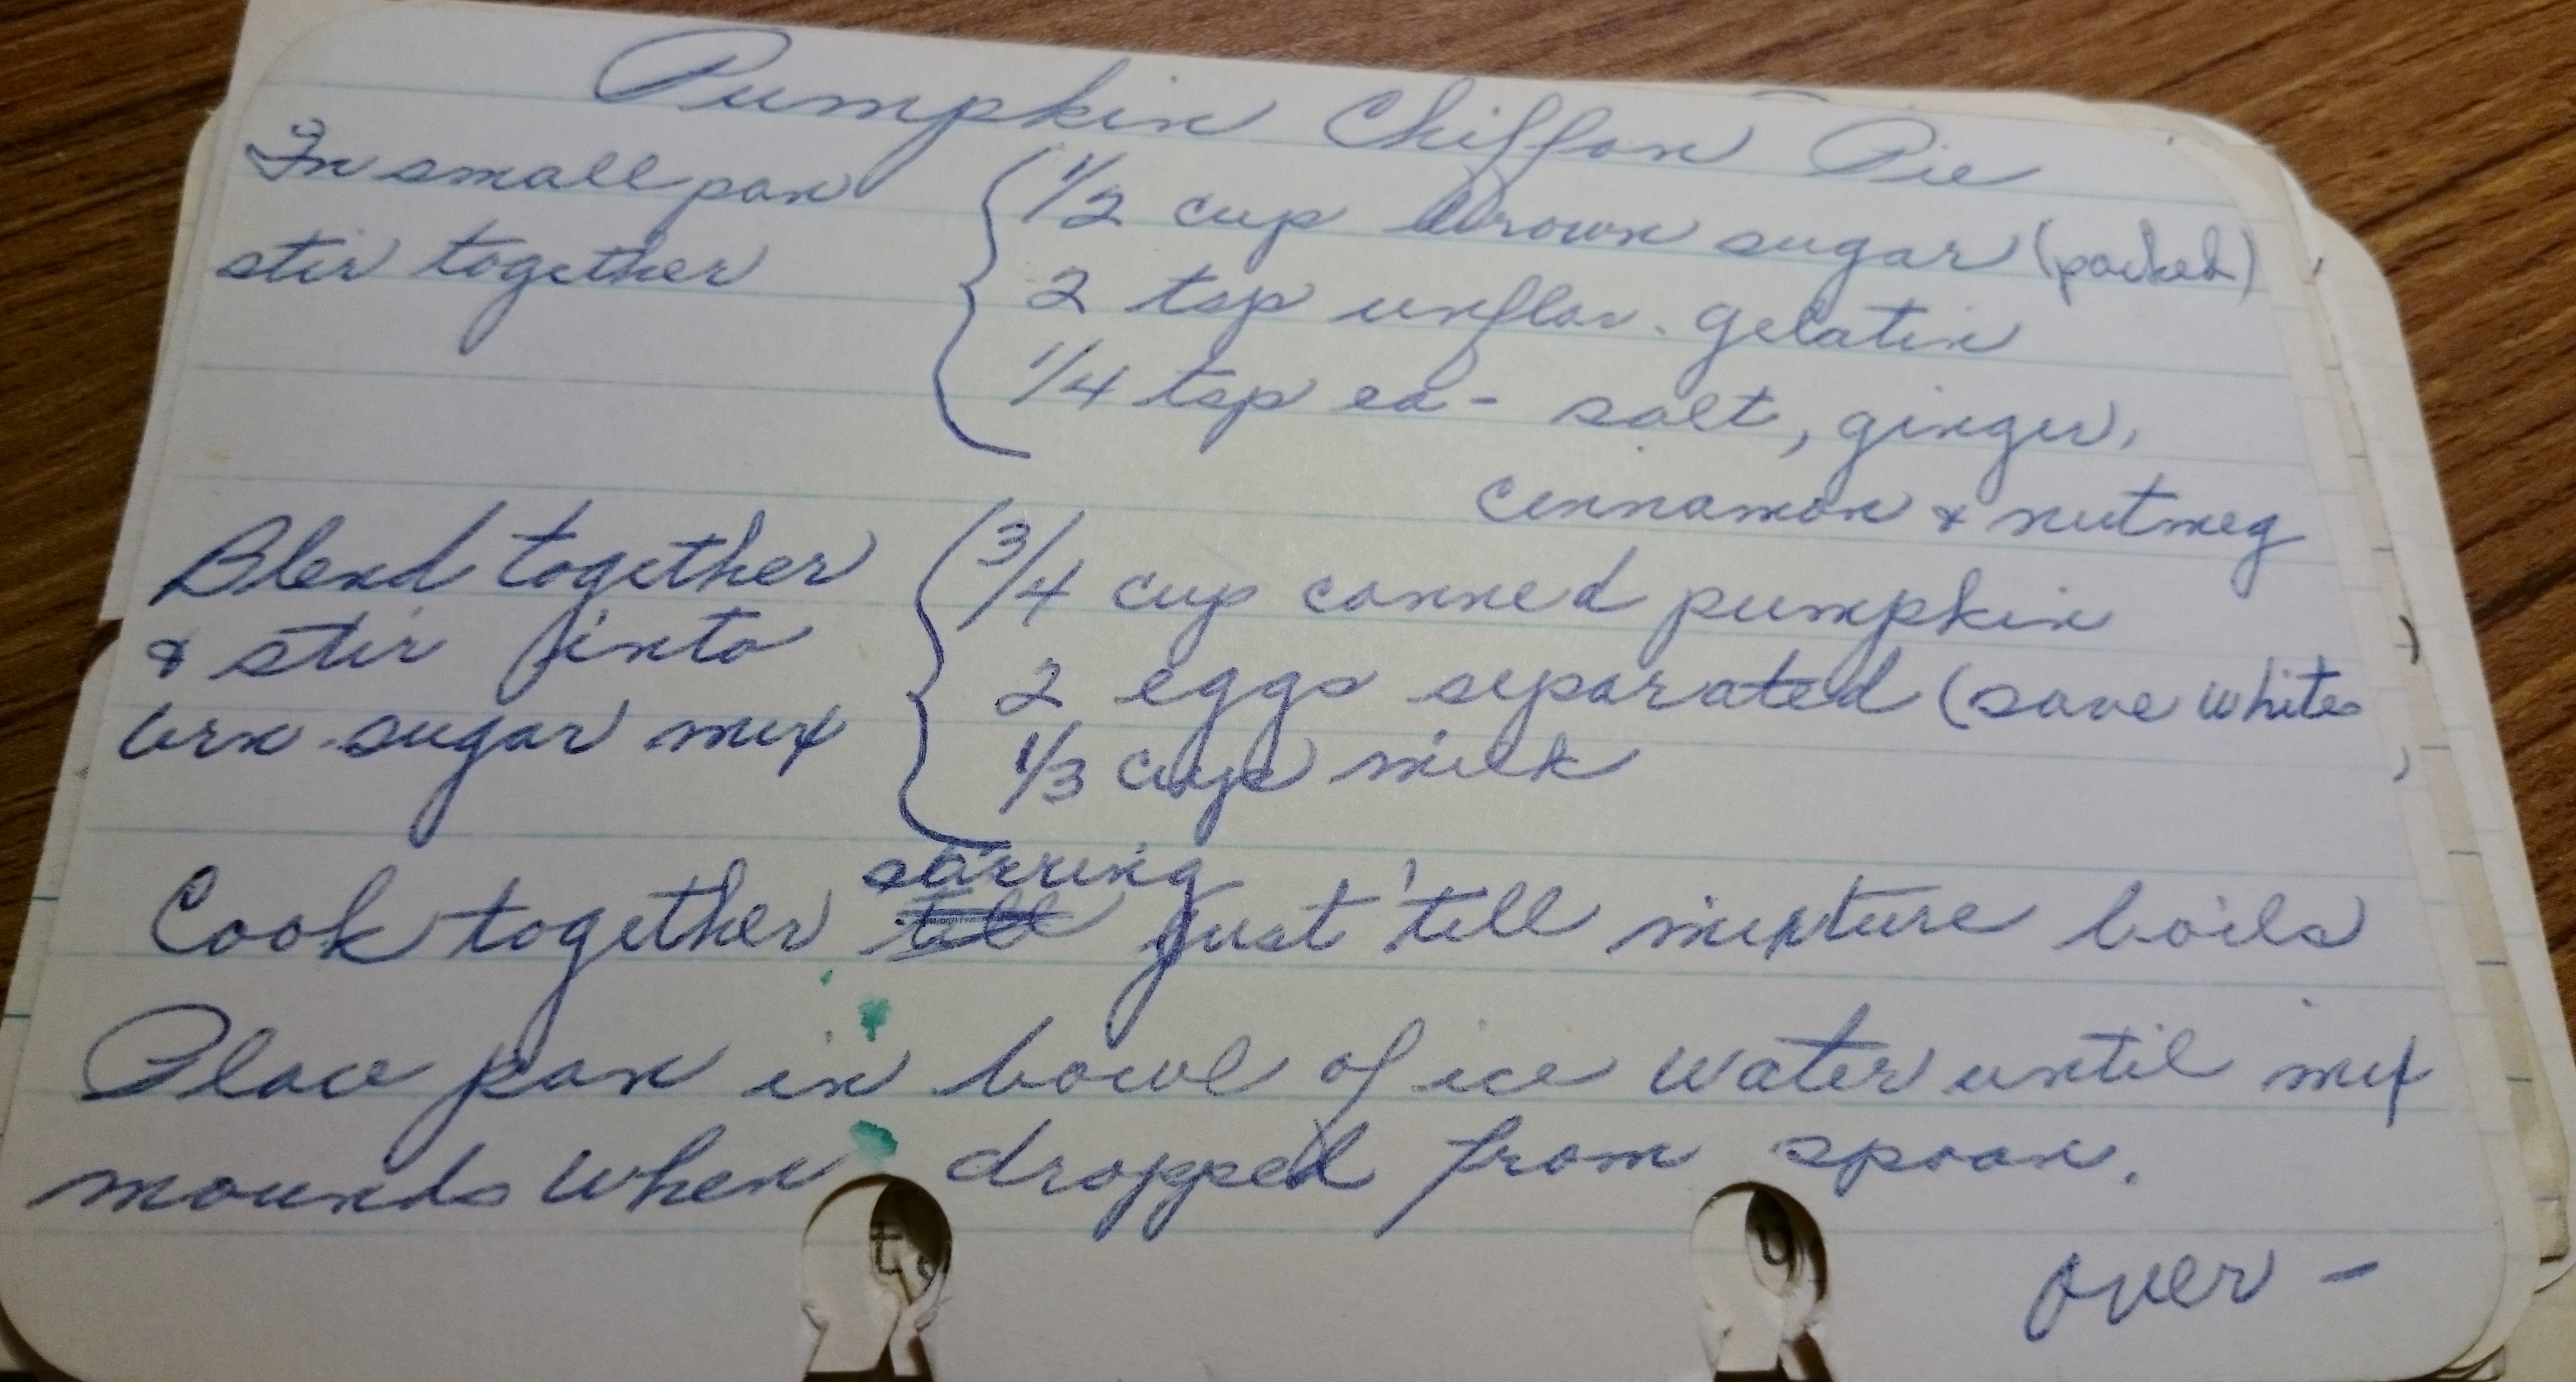 Pumpkin Chiffon Pie
In small pan
stir together
1/2 cup brown sugar (packed)
2 tsp unflav. gelatin
1/4 tsp ea - salt, ginger,
cinnamon & nutmeg
Blend together
& stir into
brn sugar mix
3/4 cup canned pumpkin
2 eggs separated (save whites
1/3 cup milk
stirring
Cook together till just 'till mixture boils
Place pan in bowl of ice water until mix
mounds when dropped from spoon.
over -